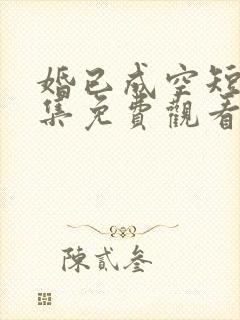 婚已成空短
集免費觀看
陳貳叁